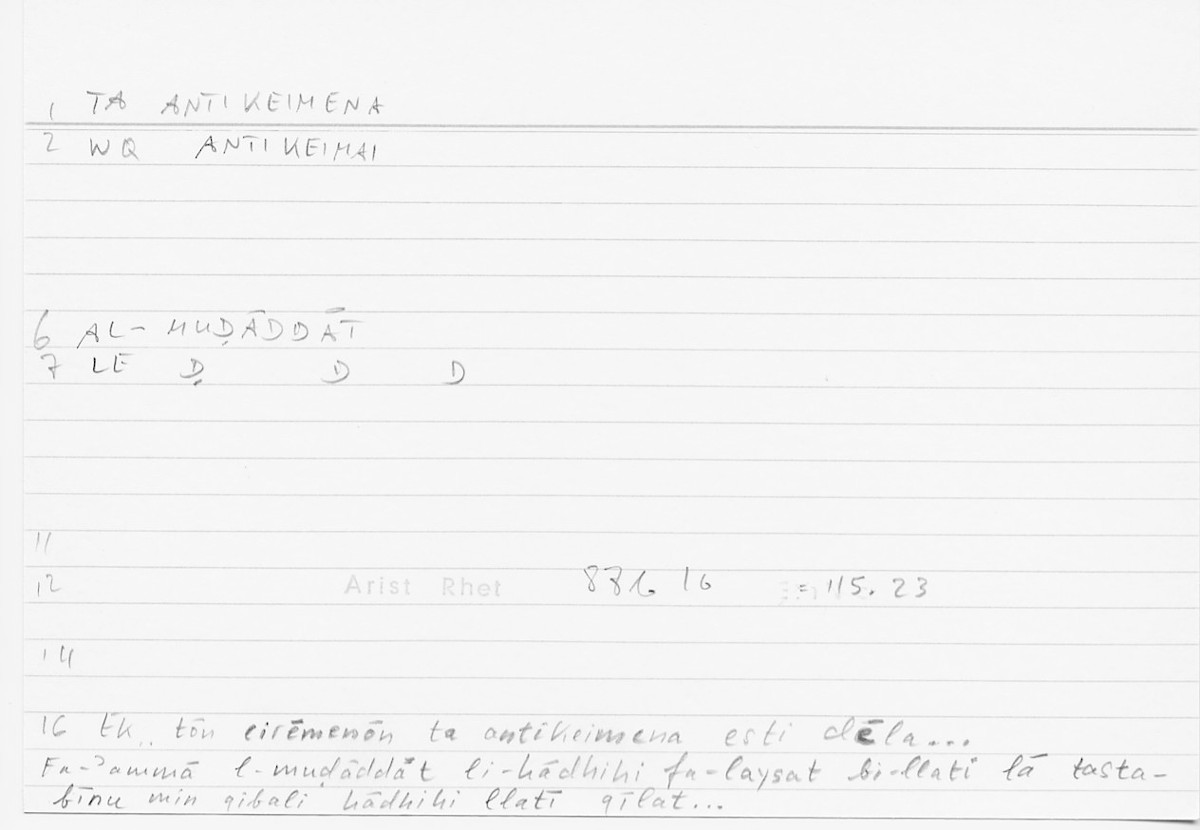 1 TA ANTIKEIMENA
2 WQ ANTIKEIMAI
6 AL-MUḌĀDDĀT
7 LE Ḍ D D
11
12 Arist Rhet 87b 16 = 115. 23
14
16 Ek tōn eirēmenōn ta antikeimena esti dēla...
Fa-ʾammā l-muḍāddāt li-hādhihi fa-laysat bi-llatī lā tasta-
bīnu min qibali hādhihi llatī qīlat...